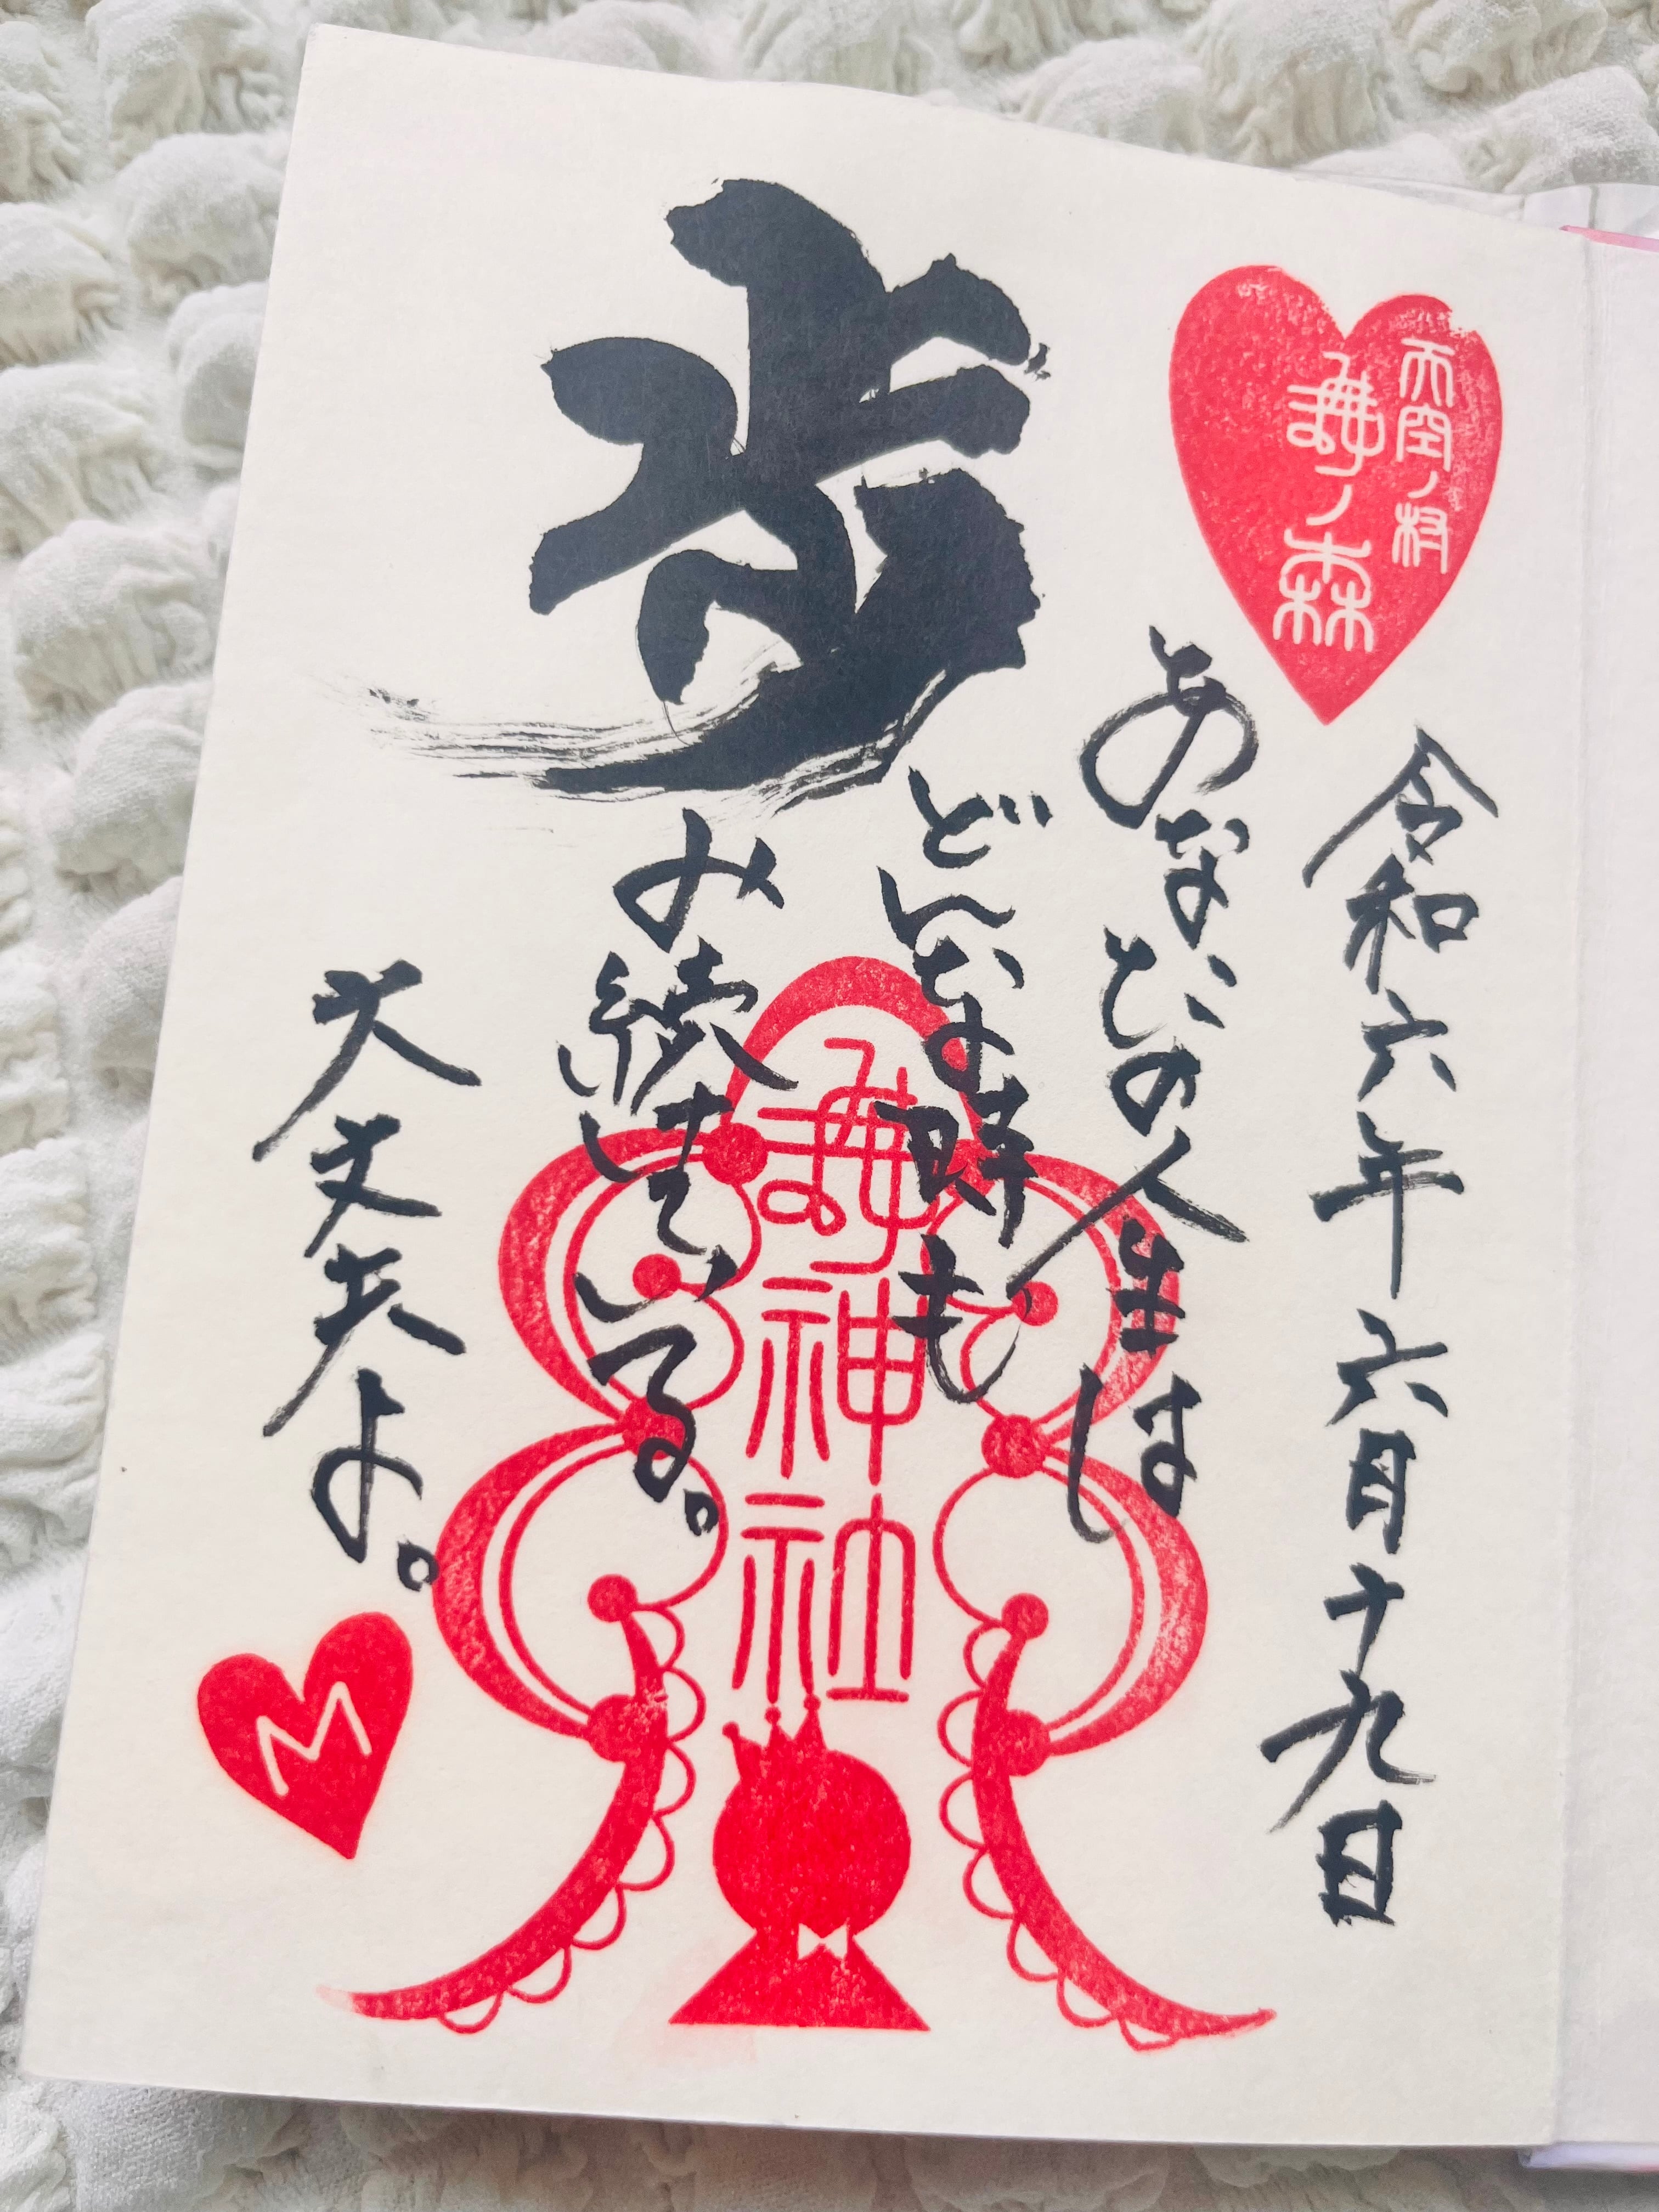 天空ノ
ノ森
令和六年六月十九日
あなたの人生は
どんな時も
歩み続けている。
大丈夫よ。
神社
M